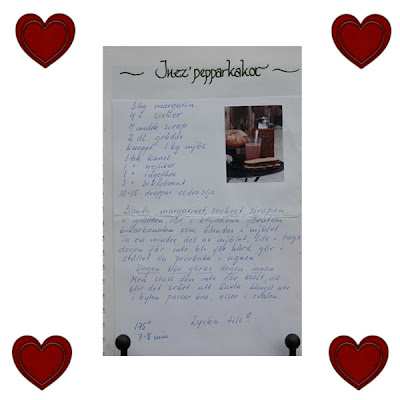 ~ Inez' pepparkakor ~
3 hg margarin
4 " socker
1 matsk sirap
2 dl grädde
knappt 1 kg mjöl
1 tsk kanel
1 " nejlikor
1 " ingefära
3 " bikarbonat
10-15 droppar cederolja
Blanda margarinet, sockret, sirapen
o grädden rör i kryddorna
bikarbonaten som blandas i mjölet
in en mindre del av mjölet. Lite i taget
degen får inte bli för hård, gör i
stället en provkaka i ugnen
Degen bör göras dagen innan
Men ställ den inte för kallt, då
blir det svårt att kavla
i kylen passar bra, eller i svalen
Lycka till!
175°
7-8 min